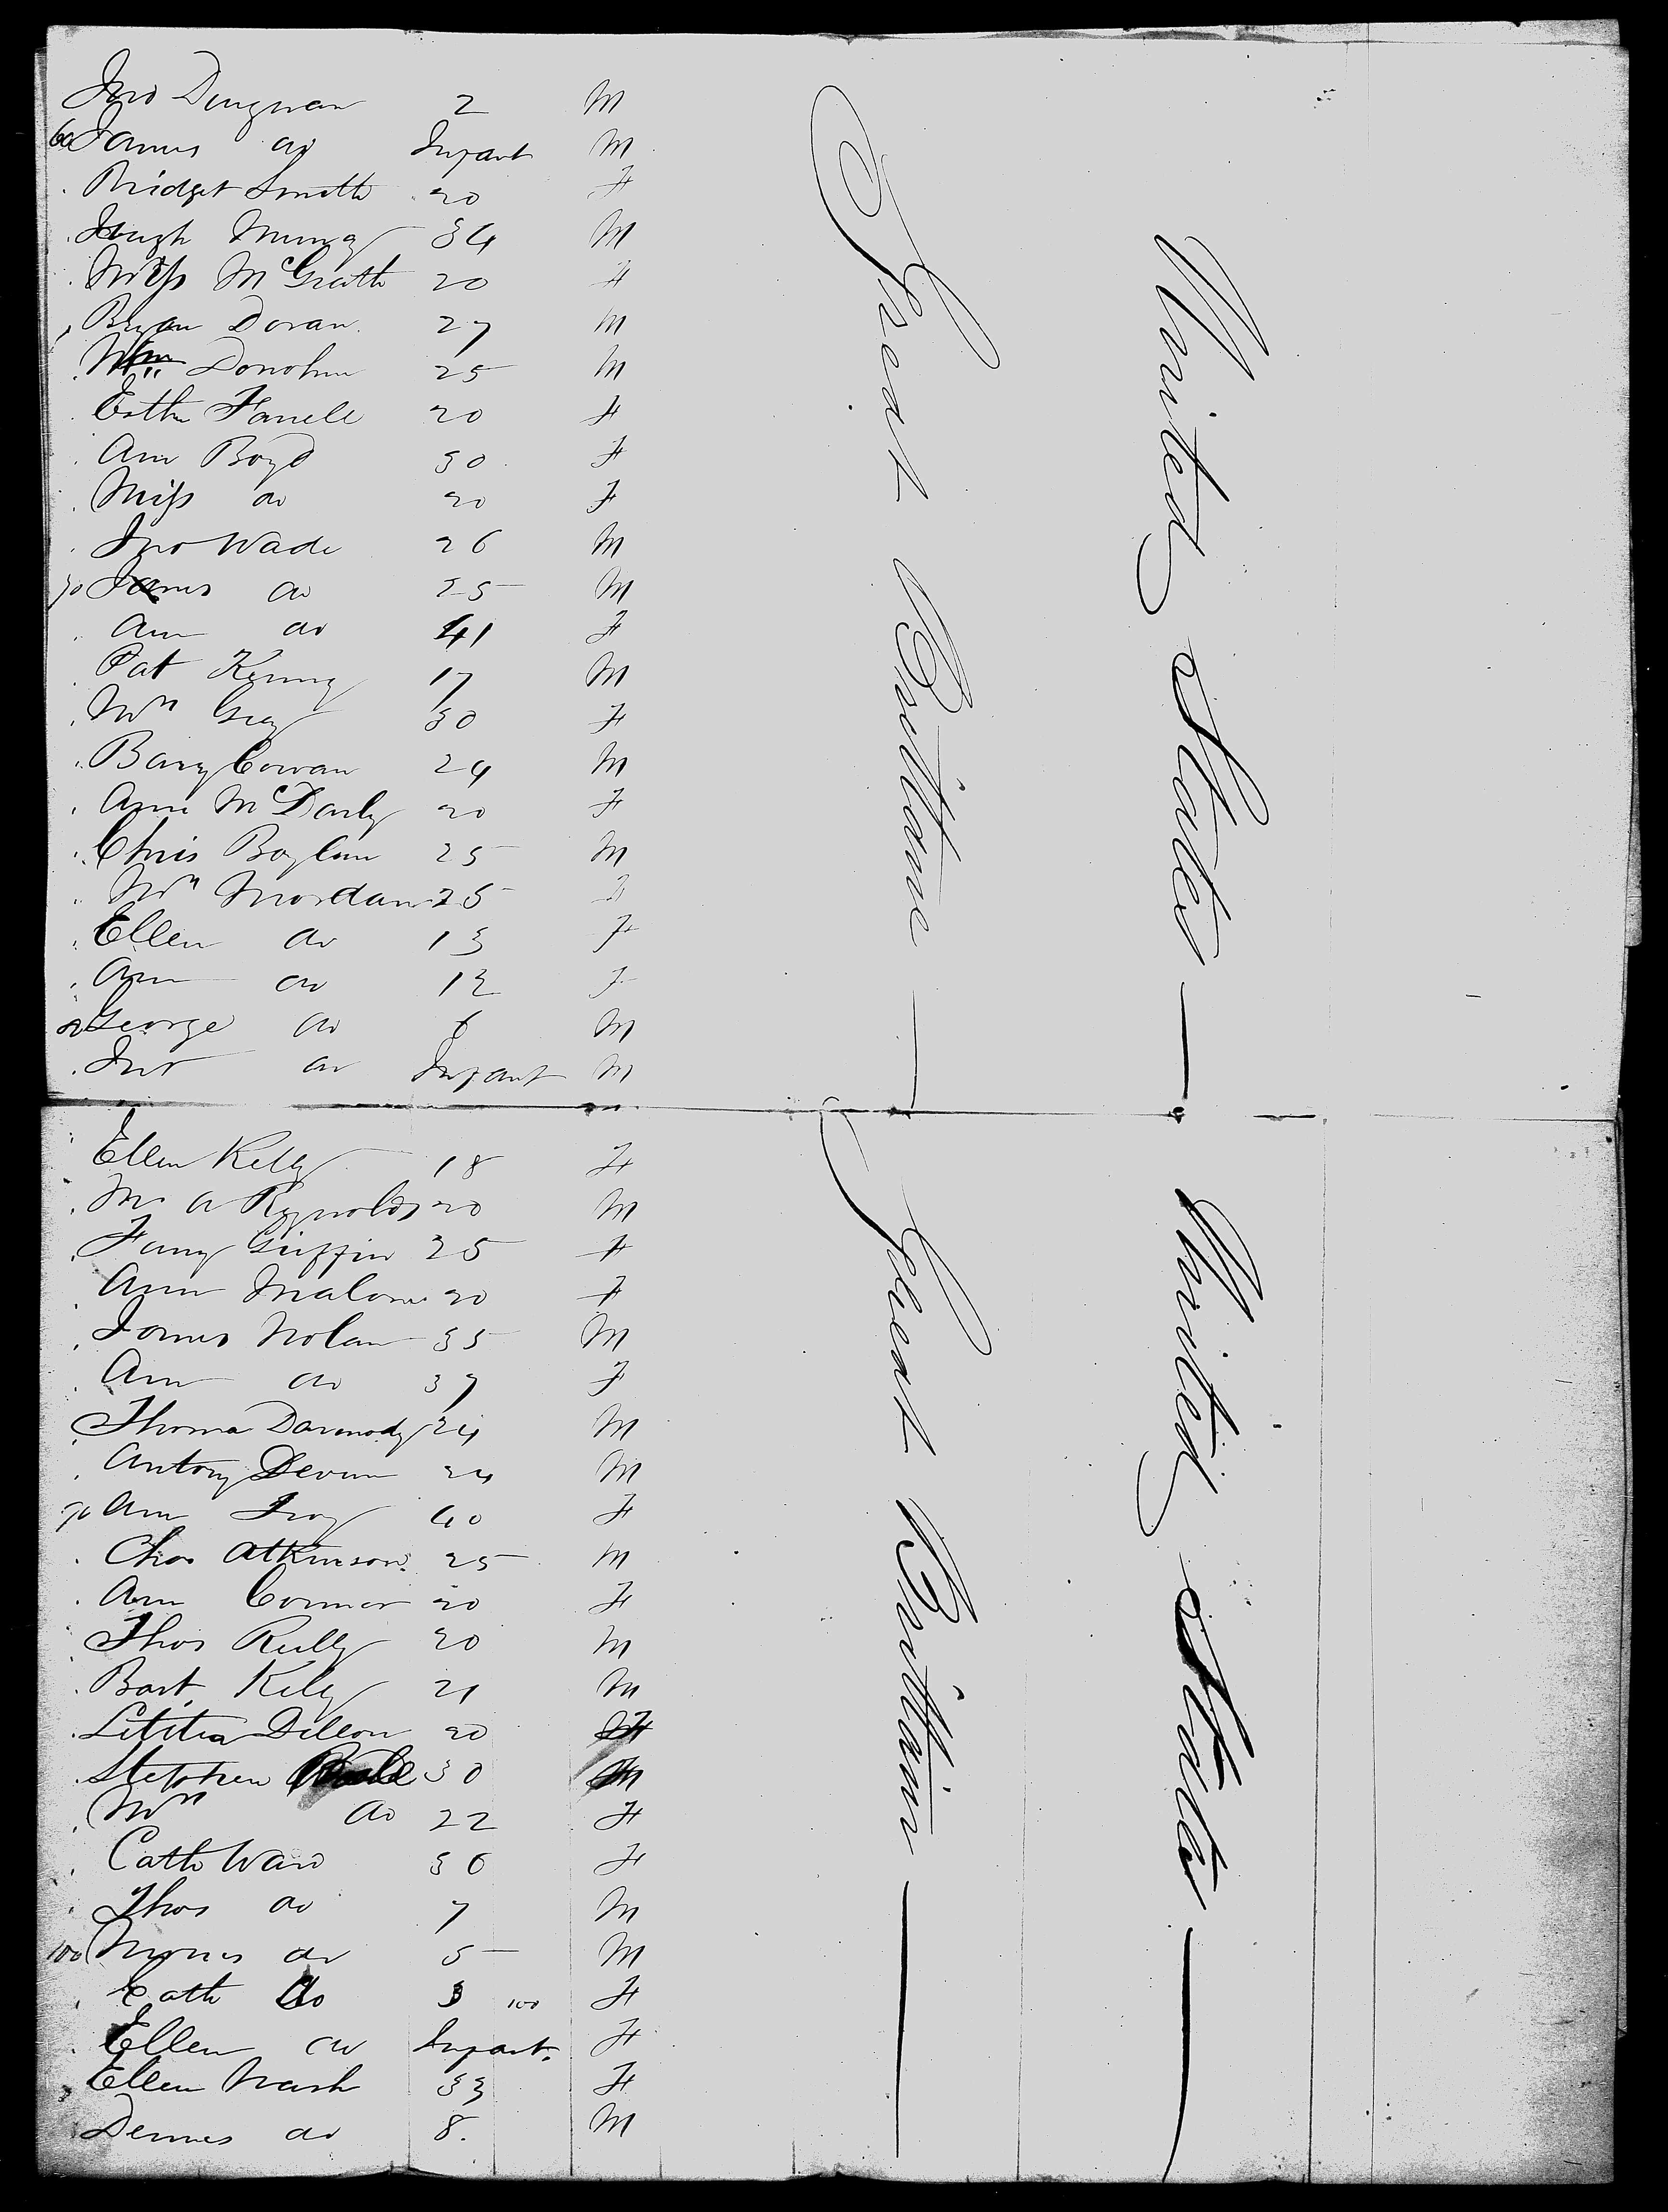 Jno Dingnan 2 M
60 James do Infant M
Bridget Smith 20 F
Hugh Murray 34 M
Miss McGrath 20 F
Bryan Doran 27 M
Wm Donohue 25 M
Esther Farrell 20 F
Ann Boyd 30 F
Miss do 20 F
Jno Wade 26 M
70 James do 25 M
Ann do 41 F
Pat Kenny 17 M
Mrs Gray 30 F
Barry Cowan 24 M
Ann McDarby 20 F
Chris Boylan 25 M
Mrs Mordan 25 F
Ellen do 13 F
Ann do 12 F
80 George do 6 M
Jno do Infant M
Great Brittane
United States
Ellen Kelly 18 F
Mr A Reynolds 20 M
Fany Griffin 25 F
Ann Malone 20 F
James Nolan 35 M
Ann do 37 F
Thomas Darmody 24 M
Antony Devine 24 M
90 Ann Troy 40 F
Chas Atkinson 25 M
Ann Connor 20 F
Thos Reilly 20 M
Bart Kelly 21 M
Letitia Dillon 20 F
Stephen 30 M
Mrs do 22 F
Cath Ward 36 F
Thos do 7 M
100 do 5 M
Cath do 3 100 F
Ellen do Infant F
Ellen Nash 33 F
Dennis do 8 M
Great Brittain
United States